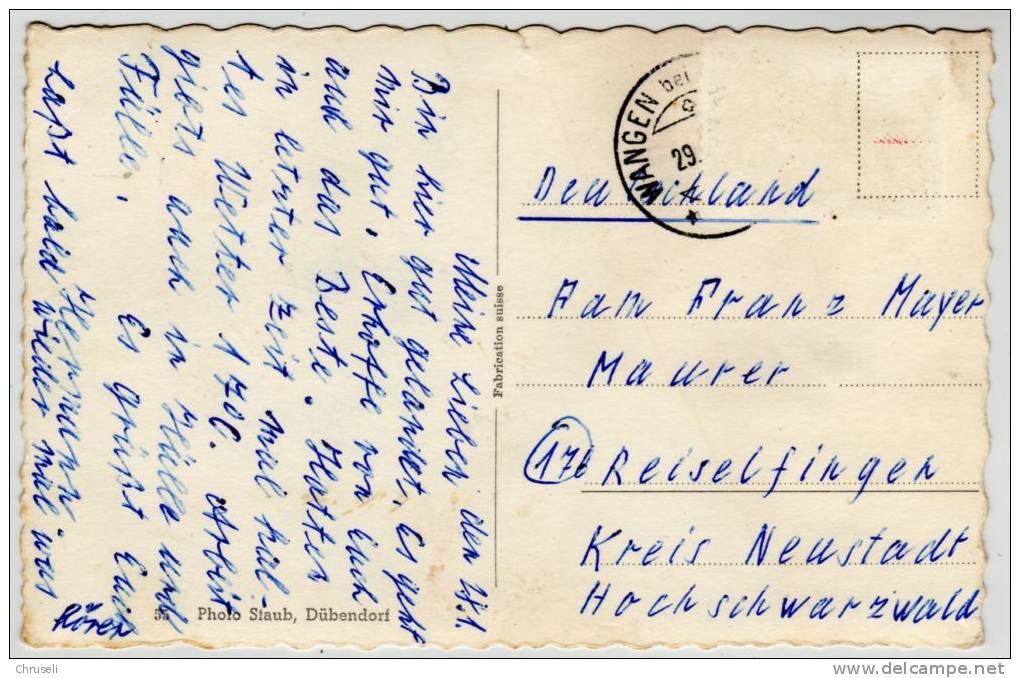 Meine Lieben den 28.1.
Bin hier gut gelandet, Es geht
mir gut, Erhoffe von Euch
auch das Beste. Hatten
in letzter Zeit mal kal-
tes Wetter 170C. Arbeit
giebts auch in Hülle und
Fülle, Es grüßt Euch
Hermann
Laßt bald wieder mal was
hören
55 Photo Staub, Dübendorf
Fabrication suisse
WANGEN bei
29.
Deutschland
Fam Franz Mayer
Maurer
17b Reiselfingen
Kreis Neustadt
Hochschwarzwald
Chruseli
delcampe.net